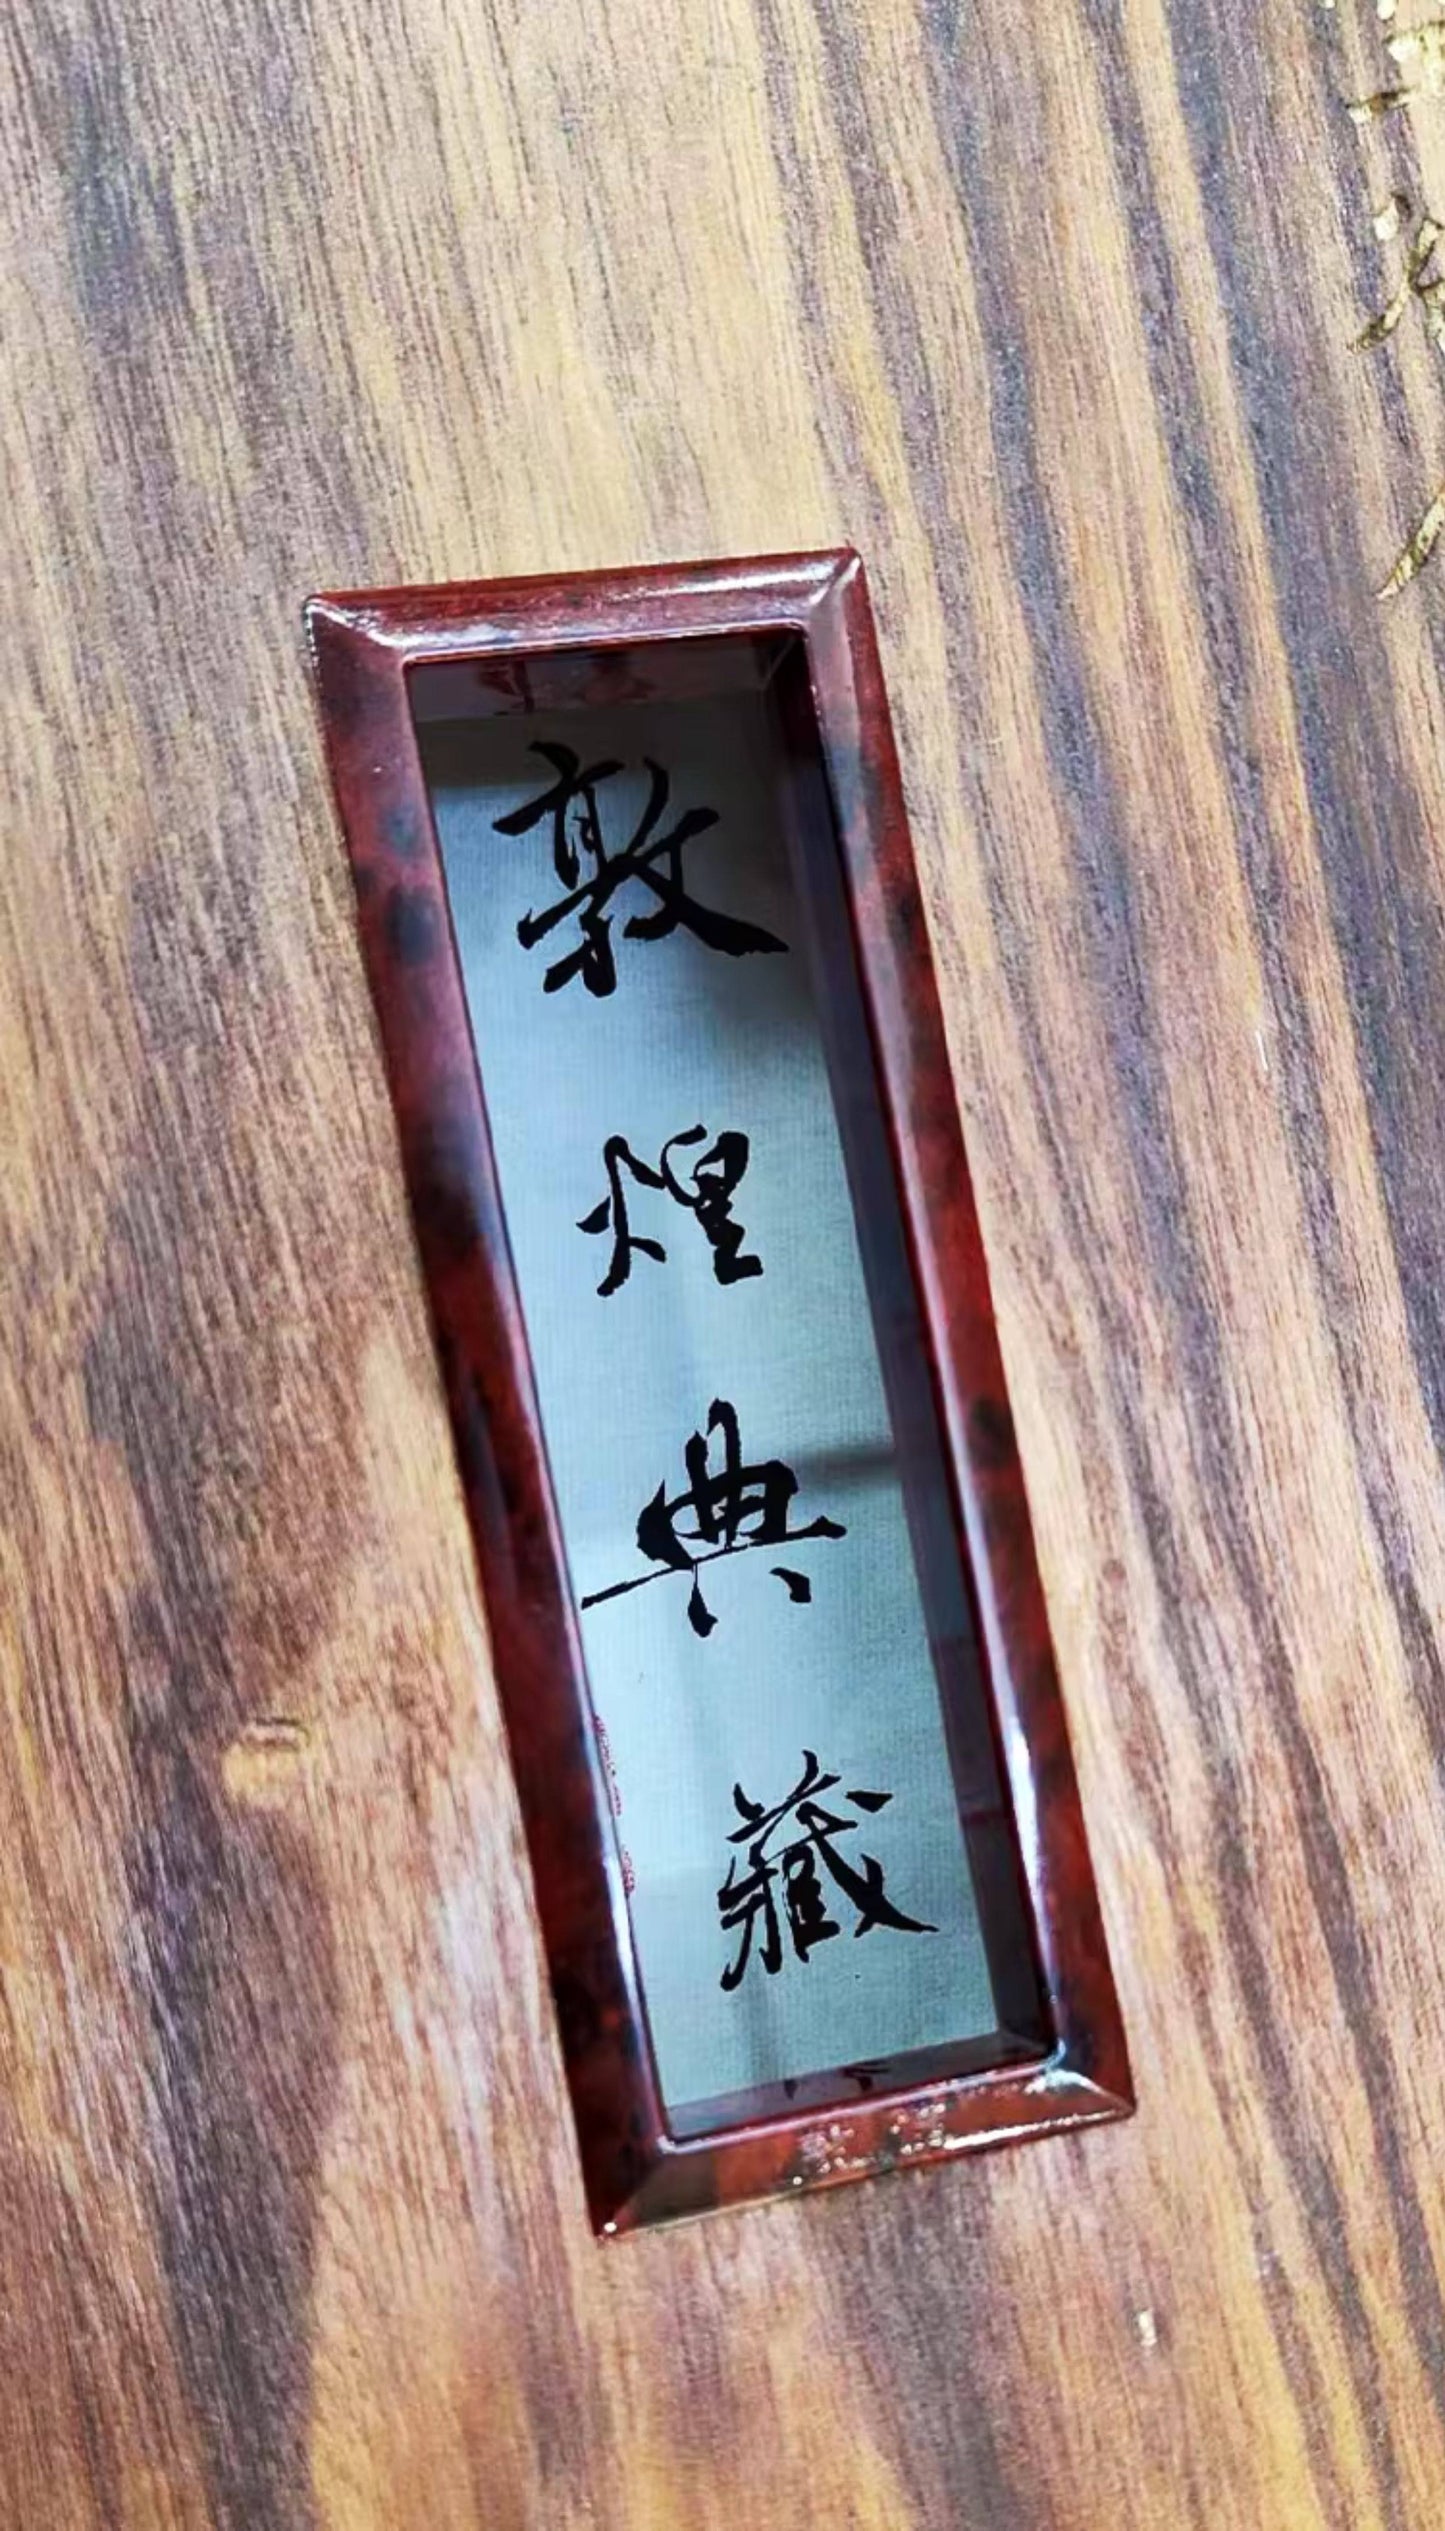 敦煌典藏